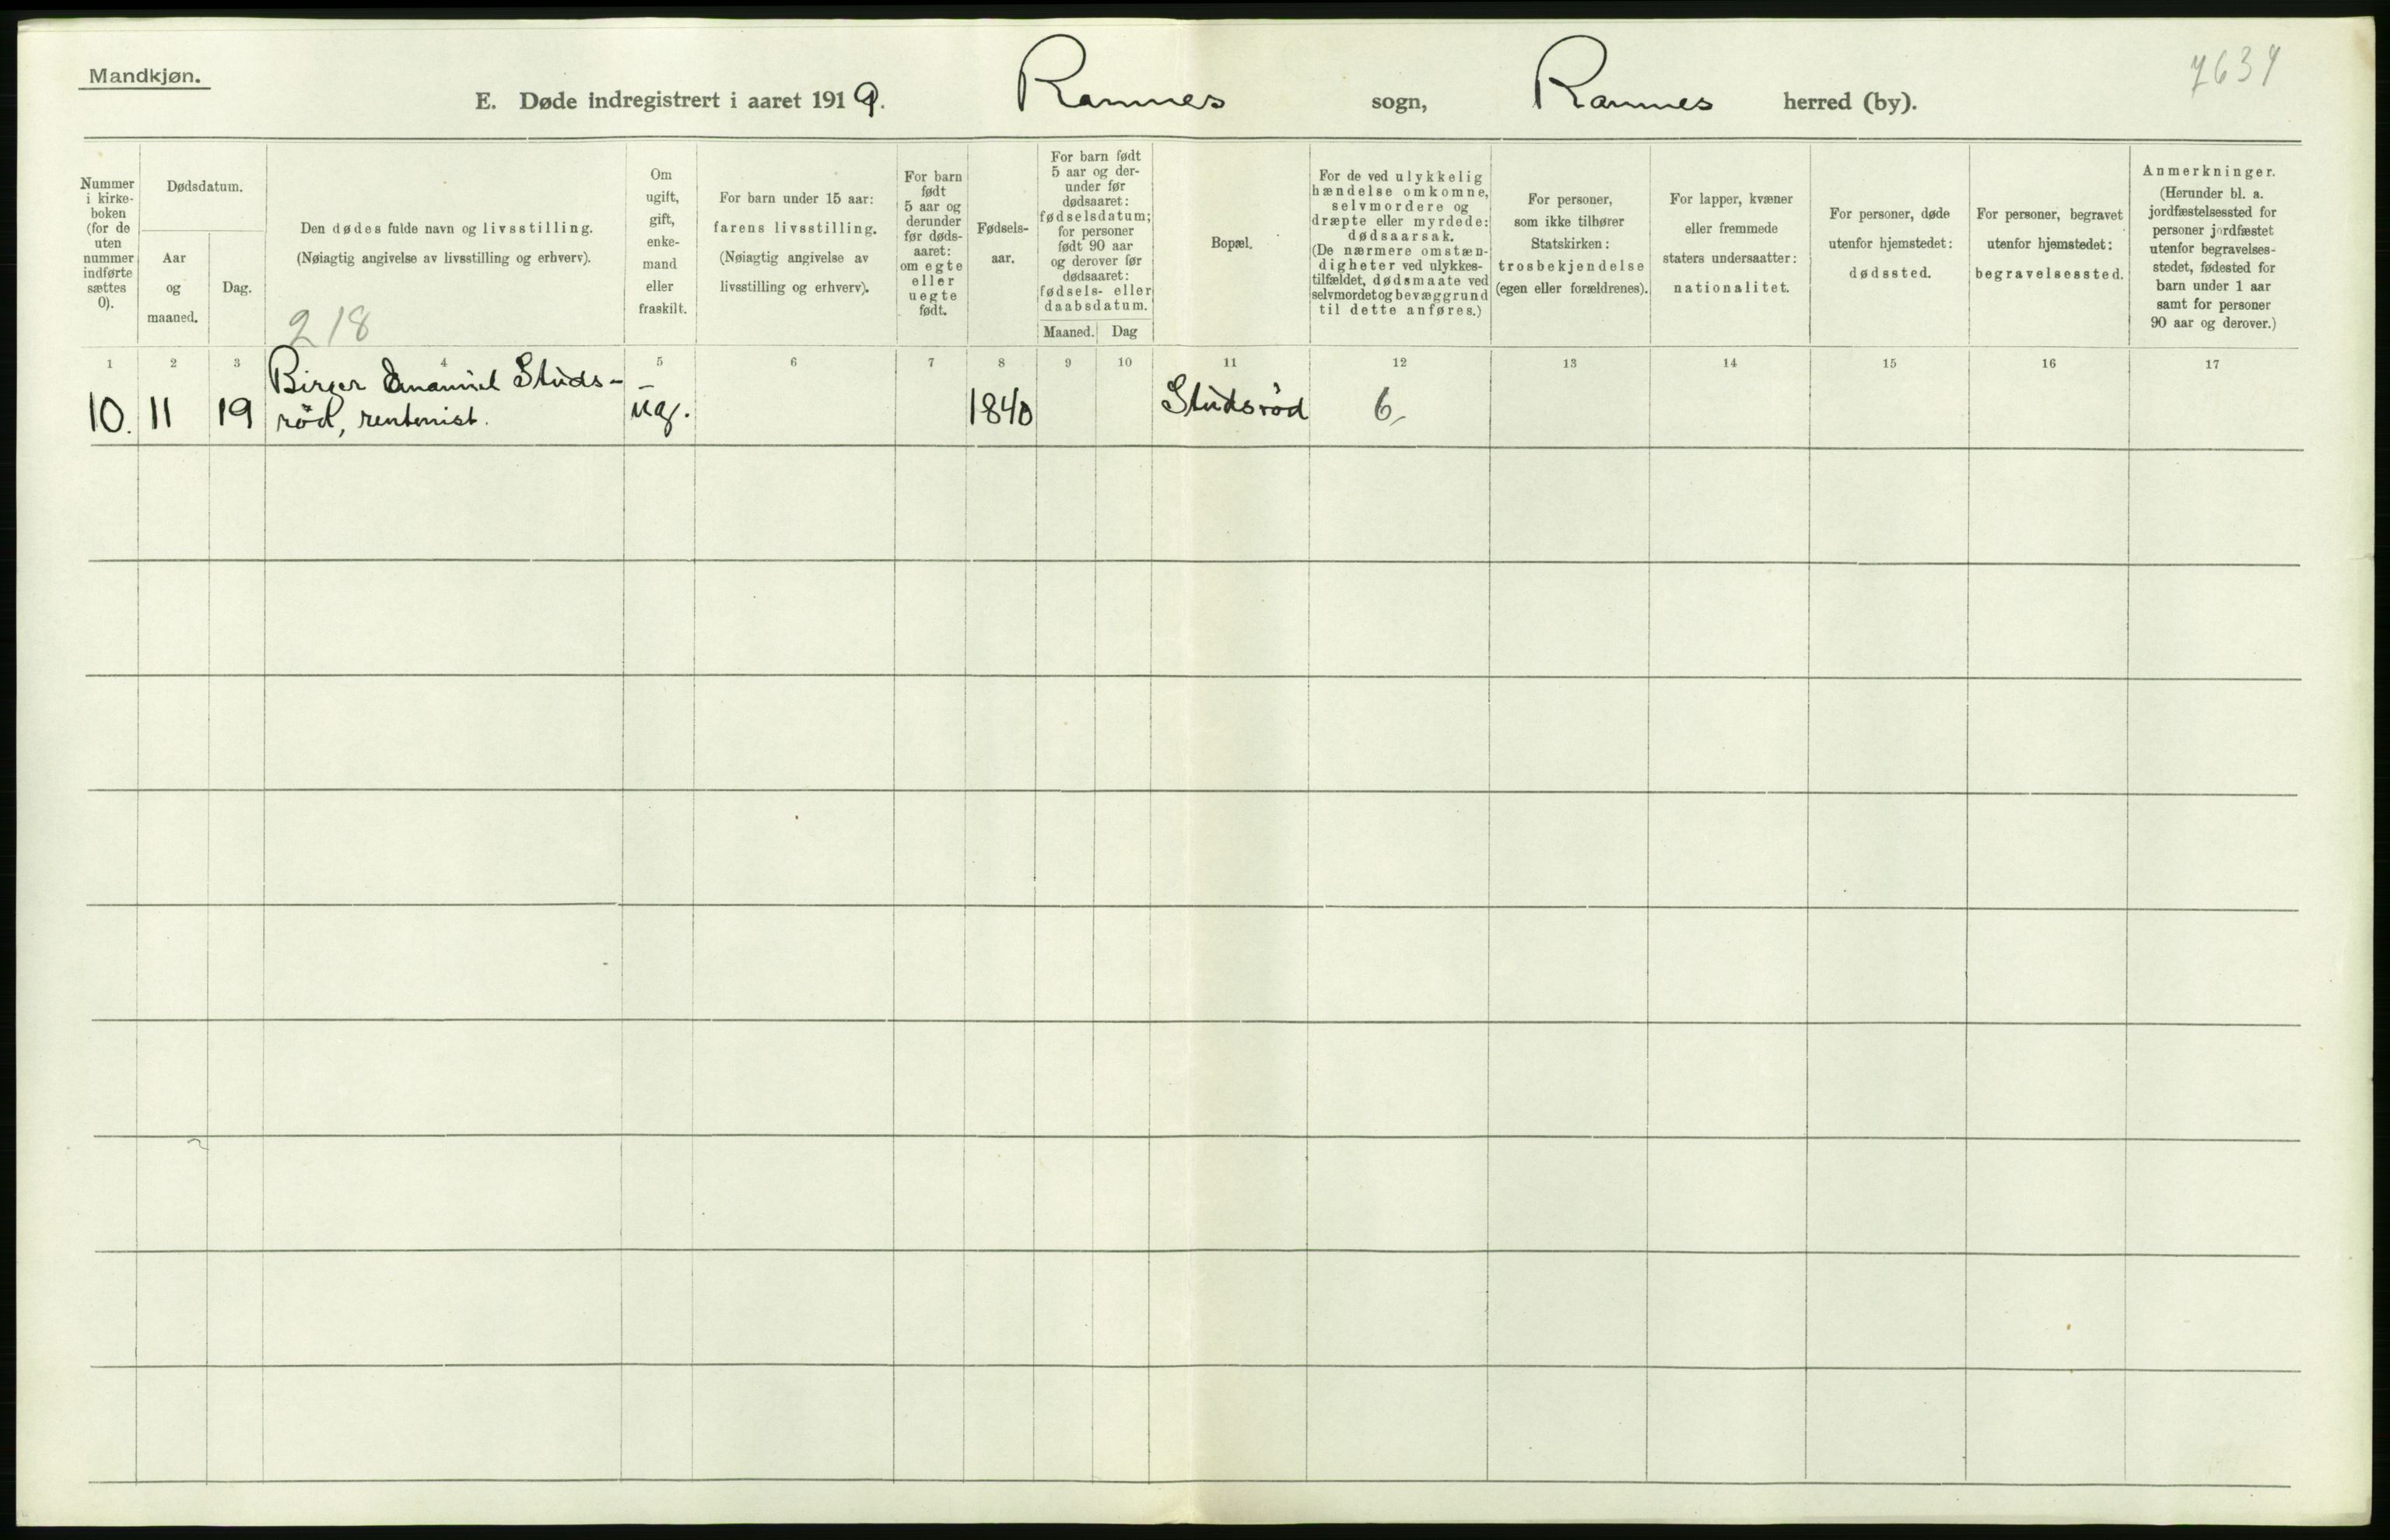 Mandkjøn.
7634
E. Døde indregistrert i aaret 1919. Ramnes sogn, Ramnes herred (by).
Nummer i kirke- boken (for de uten nummer indførte sættes 0).
Dødsdatum.
Aar og maaned.
Dag.
Den dødes fulde navn og livsstilling.
(Nøiagtig angivelse av livsstilling og erhverv).
218
Om ugift, gift, enke- mand eller fraskilt.
For barn under 15 aar:
farens livsstilling.
(Nøiagtig angivelse av
livsstilling og erhverv).
For barn født 5 aar og derunder før døds- aaret: om egte eller uegte født.
Fødsels- aar.
For barn født 5 aar og der- under før dødsaaret: fødselsdatum; for personer født 90 aar og derover før dødsaaret: fødsels- eller daabsdatum.
Maaned. Dag
Bopæl.
For de ved ulykkelig hændelse omkomne, selvmordere og dræpte eller myrdede: dødsaarsak. (De nærmere omstæn- digheter ved ulykkes- tilfældet, dødsmaate ved selvmordet og bevæggrund til dette anføres.)
For personer, som ikke tilhører Statskirken: trosbekjendelse (egen eller forældrenes).
For lapper, kvæner eller fremmede staters undersaatter: nationalitet.
For personer, døde utenfor hjemstedet: dødssted.
For personer, begravet utenfor hjemstedet: begravelsessted.
Anmerkninger.
(Herunder bl. a. jordfæstelsessted for personer jordfæstet utenfor begravelses- stedet, fødested for barn under 1 aar samt for personer 90 aar og derover.)
1 2 3 4 5 6 7 8 9 10 11 12 13 14 15 16 17
Birger Emanuel Studs-
10. 11 19 rød, rentenist. ug. 1840 Studsrød 6